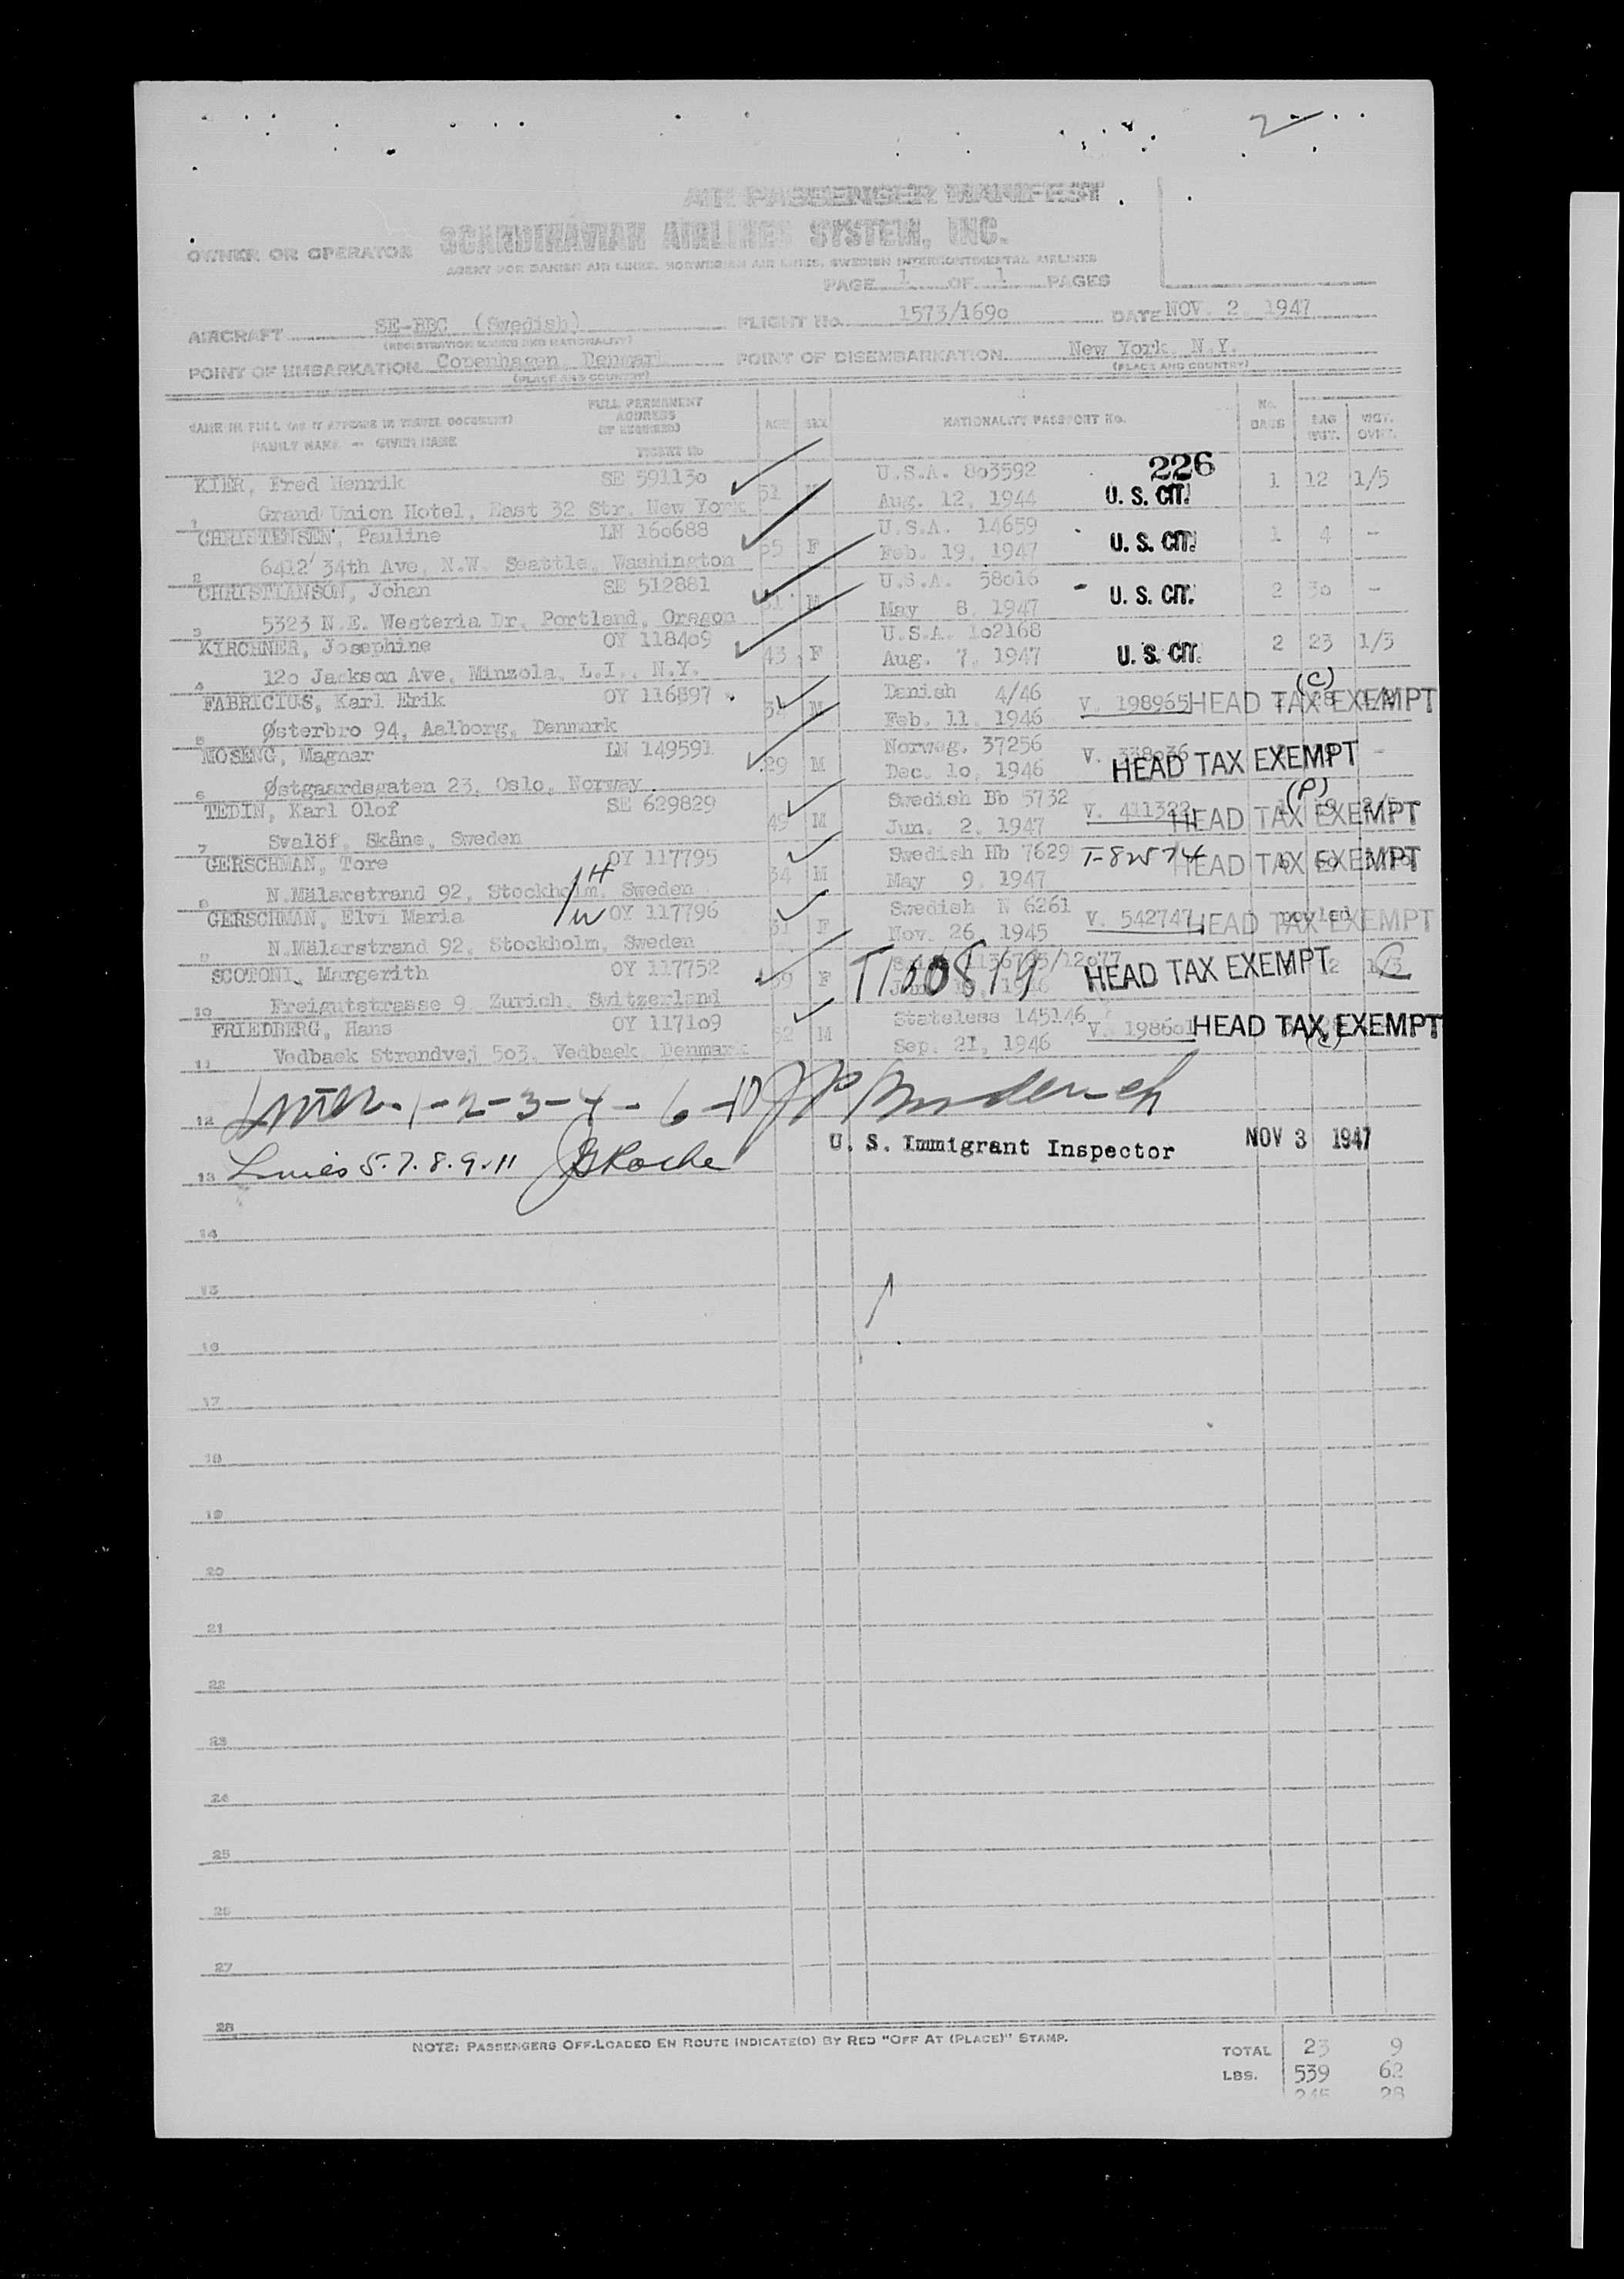 2
AIR PASSENGER MANIFEST
OWNER OR OPERATOR SCANDINAVIAN AIRLINES SYSTEM, INC.
AGENT FOR DANISH AIR LINES, NORWEGIAN AIR LINES, SWEDISH INTERCONTINENTAL AIRLINES
PAGE 1 OF 1 PAGES
AIRCRAFT (Swedish) FLIGHT No. 1573/1690 DATE NOV. 2, 1947
(REGISTRATION MARKS AND NATIONALITY)
POINT OF EMBARKATION Copenhagen, Denmark POINT OF DISEMBARKATION New York, N.Y.
(PLACE AND COUNTRY) (PLACE AND COUNTRY)
NAME IN FULL (AS IT APPEARS IN TRAVEL DOCUMENT) FULL PERMANENT ADDRESS (IF REQUIRED) AGE SEX NATIONALITY PASSPORT No. No. BAGS BAG WGT. WGT. OVWT.
FAMILY NAME — GIVEN NAME TICKET No
KIER, Fred Henrik SE 591130 51 M U.S.A. 803592 226 1 12 1/5
1 Grand Union Hotel, East 32 Str. New York Aug. 12, 1944 U. S. CIT.
CHRISTENSEN, Pauline LN 160688 F U.S.A. 14659 U. S. CIT. 1 4 -
2 6412 34th Ave, N.W. Seattle, Washington Feb. 19, 1947
CHRISTIANSON, Johan SE 512881 M U.S.A. 58016 U. S. CIT. 2 30 -
3 5323 N.E. Westeria Dr, Portland, Oregon May 8, 1947
KIRCHNER, Josephine OY 118409 43 F U.S.A. 102168 2 23 1/3
4 120 Jackson Ave, Minzola, L.I., N.Y. Aug. 7, 1947 U. S. CIT.
FABRICIUS, Karl Erik OY 116897 34 M Danish 4/46 V. 198965 HEAD TAX EXEMPT (C)
5 Østerbro 94, Aalborg, Denmark Feb. 11, 1946
MOSENG, Magnar LN 149591 29 M Norweg. 37256 V. HEAD TAX EXEMPT -
6 Østgaardsgaten 23, Oslo, Norway Dec. 10, 1946
TEDIN, Karl Olof SE 629829 49 M Swedish Bb 5732 V. 411322 HEAD TAX EXEMPT (P)
7 Svalöf, Skåne, Sweden Jun. 2, 1947
GERSCHMAN, Tore OY 117795 34 M Swedish Hb 7629 HEAD TAX EXEMPT
8 N.Mälarstrand 92, Stockholm, Sweden H May 9, 1947
GERSCHMAN, Elvi Maria W OY 117796 31 F Swedish N 6261 V. 542747 HEAD TAX EXEMPT
9 N.Mälarstrand 92, Stockholm, Sweden Nov. 26, 1945
SCOTONI, Margerith OY 117752 F T100819 HEAD TAX EXEMPT
10 Freigutstrasse 9, Zurich, Switzerland
FRIEDBERG, Hans OY 117109 52 M Stateless 145146 V. 198601 HEAD TAX EXEMPT (C)
11 Vedbaek Strandvej 503, Vedbaek, Denmark Sep. 21, 1946
12 1-2-3-4-6-10
13 Lines 5.7.8.9.11 U. S. Immigrant Inspector NOV 3 1947
14
15
16
17
18
19
20
21
22
23
24
25
26
27
28
NOTE: PASSENGERS OFF-LOADED EN ROUTE INDICATE(D) BY RED "OFF AT (PLACE)" STAMP.
TOTAL 23 9
LBS. 539 62
245 28